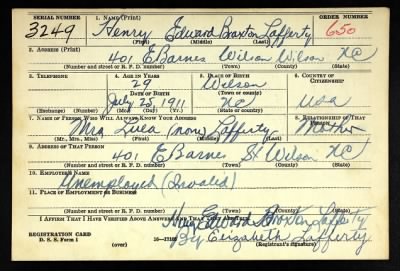 SERIAL NUMBER 1. NAME (Print) ORDER NUMBER
3249 Henry Edward Braxton Lafferty 650
(First) (Middle) (Last)
2. ADDRESS (Print)
401 E Barnes Wilson Wilson NC
(Number and street or R. F. D. number) (Town) (County) (State)
3. TELEPHONE 4. AGE IN YEARS 5. PLACE OF BIRTH 6. COUNTRY OF CITIZENSHIP
29 Wilson
DATE OF BIRTH (Town or county)
July 25, 1911 NC USA
(Exchange) (Number) (Mo.) (Day) (Yr.) (State or country)
7. NAME OF PERSON WHO WILL ALWAYS KNOW YOUR ADDRESS 8. RELATIONSHIP OF THAT PERSON
Mrs Lula (none) Lafferty Mother
(Mr., Mrs., Miss) (First) (Middle) (Last)
9. ADDRESS OF THAT PERSON
401 E Barnes St Wilson NC
(Number and street or R. F. D. number) (Town) (County) (State)
10. EMPLOYER'S NAME
Unemployed (Invalid)
11. PLACE OF EMPLOYMENT OR BUSINESS
(Number and street or R. F. D. number) (Town) (County) (State)
I AFFIRM THAT I HAVE VERIFIED ABOVE ANSWERS AND THAT THEY ARE TRUE.
Henry Edward Braxton Lafferty
REGISTRATION CARD By Elizabeth Lafferty
D. S. S. Form 1 (over) (Registrant's signature)